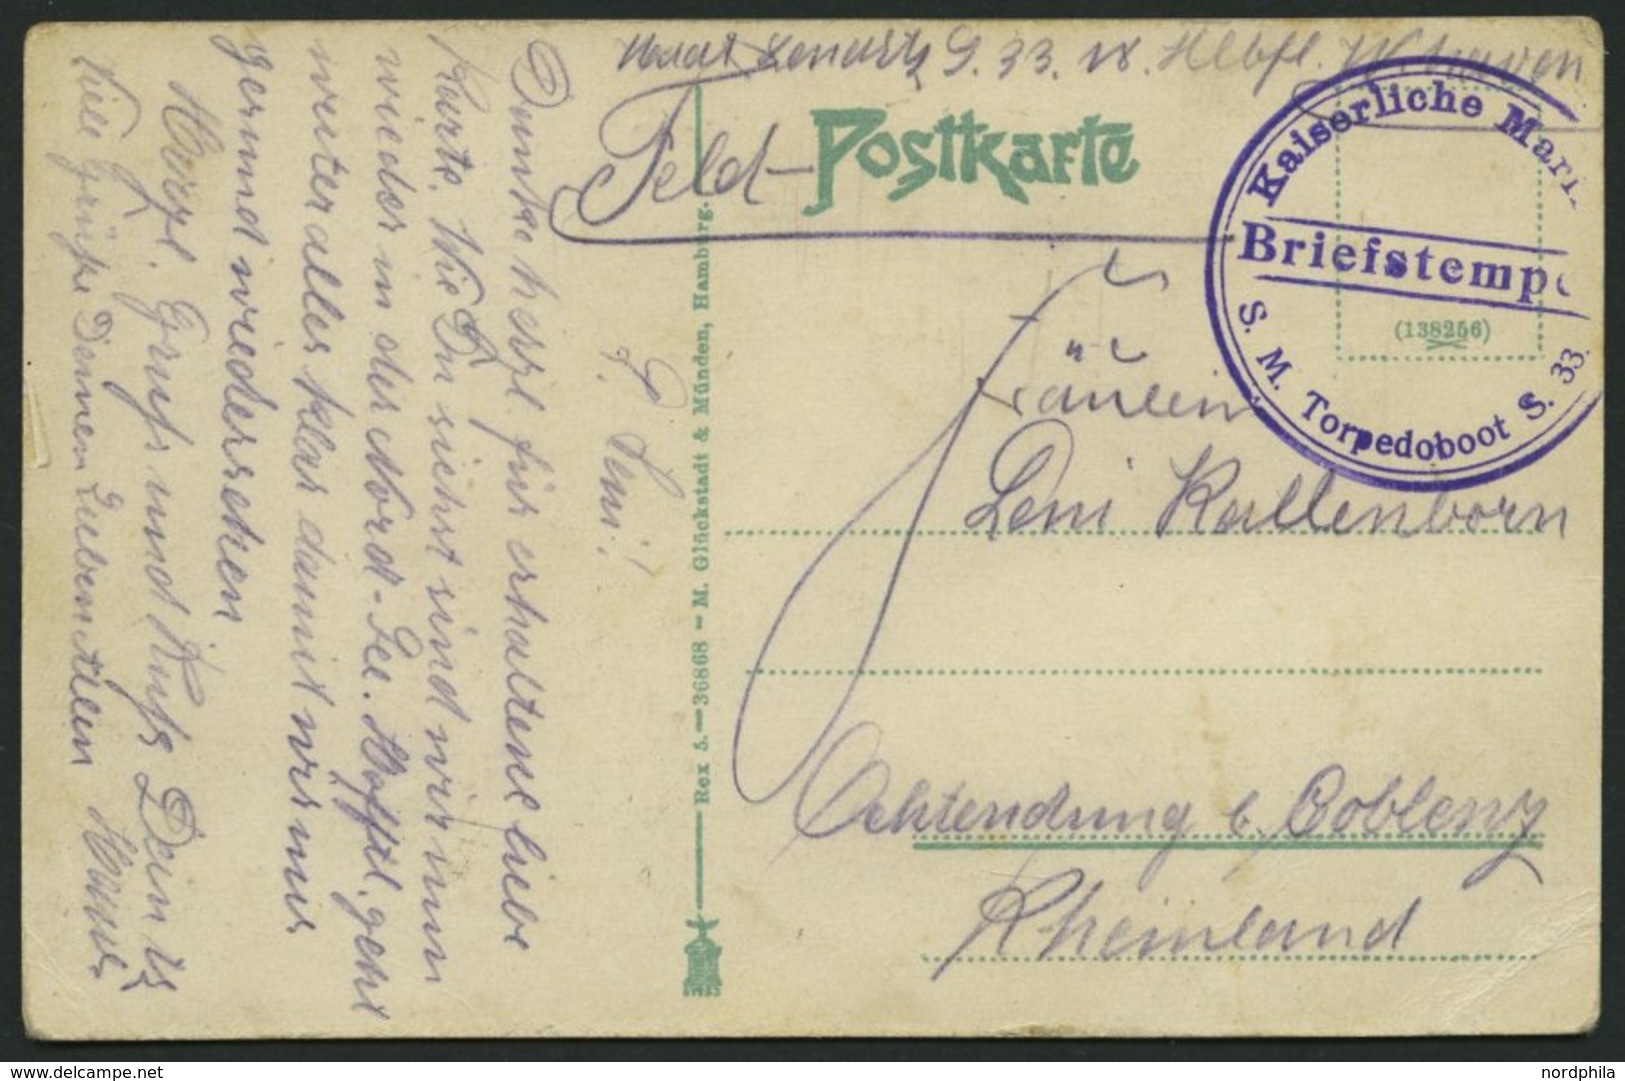 S. 33. IV. Hlbfl. W'haven
Feld-Postkarte
Kaiserliche Mari
Briefstempe
S. M. Torpedoboot S. 33.
(138256)
Fräulein
Leni Kallenborn
Ochtendung b. Coblenz
Rheinland
Rex 5. — 36868 — M. Glückstadt & Münden, Hamburg.
L. Leni!
Danke herzl. für erhaltene liebe
Karte. Wie Du siehst sind wir nun
wieder in der Nord-See. Hofftl. geht
weiter alles klar damit wir uns
gesund wiedersehen
Herzl. Gruß und Kuß Dein
Viele Grüße Deinen Lieben
nordphila